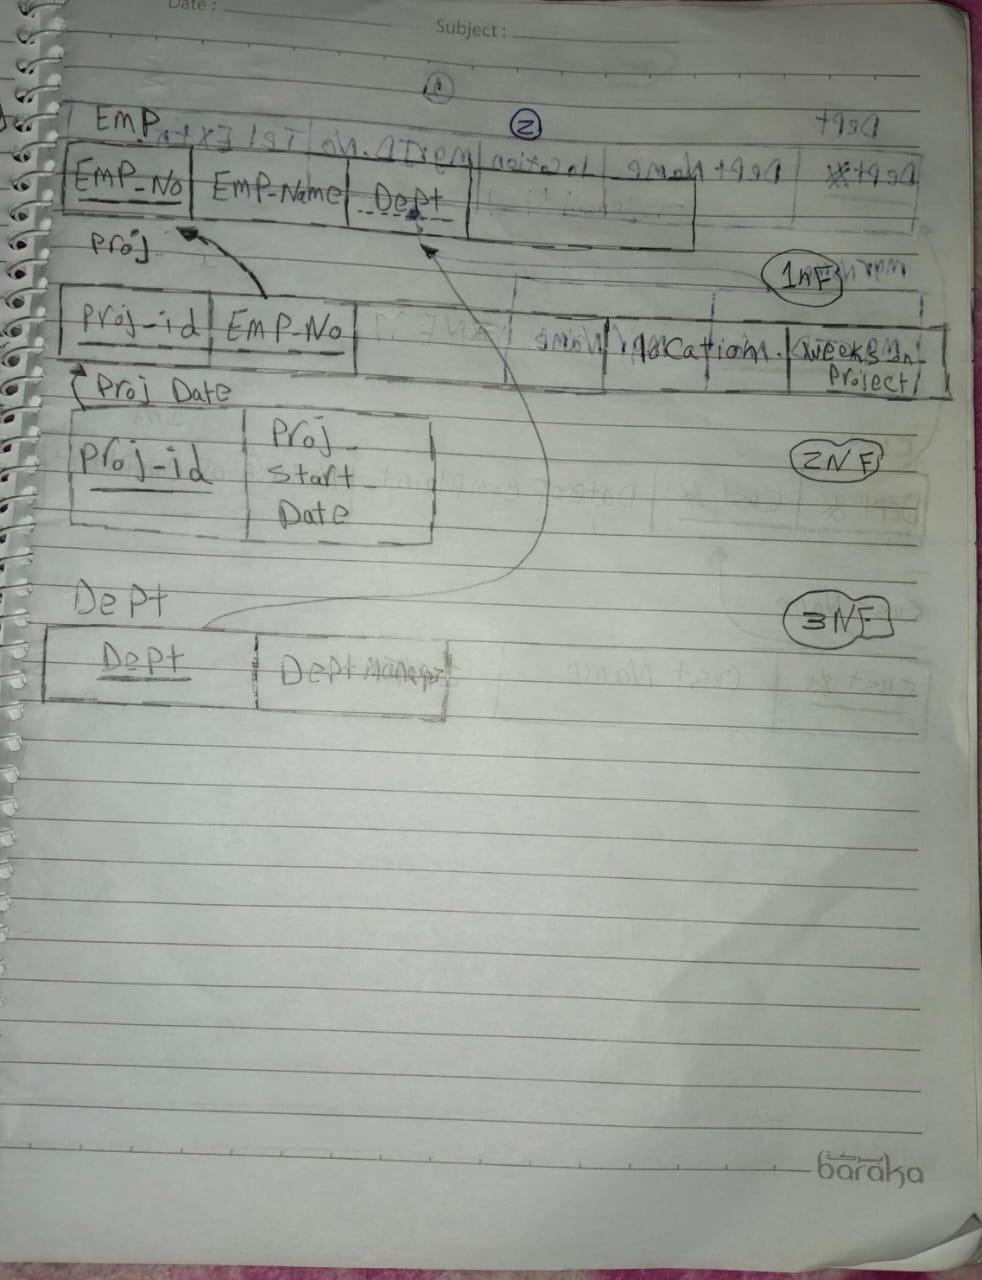 Date :
Subject :
1
2
EMP
EMP_No EMP-Name Dept
Proj
1NF
Proj-id EMP-No location. weeks In Project
Proj Date
Proj-id Proj_ start_ Date
2NF
Dept
3NF
Dept Dept Manager
baraka